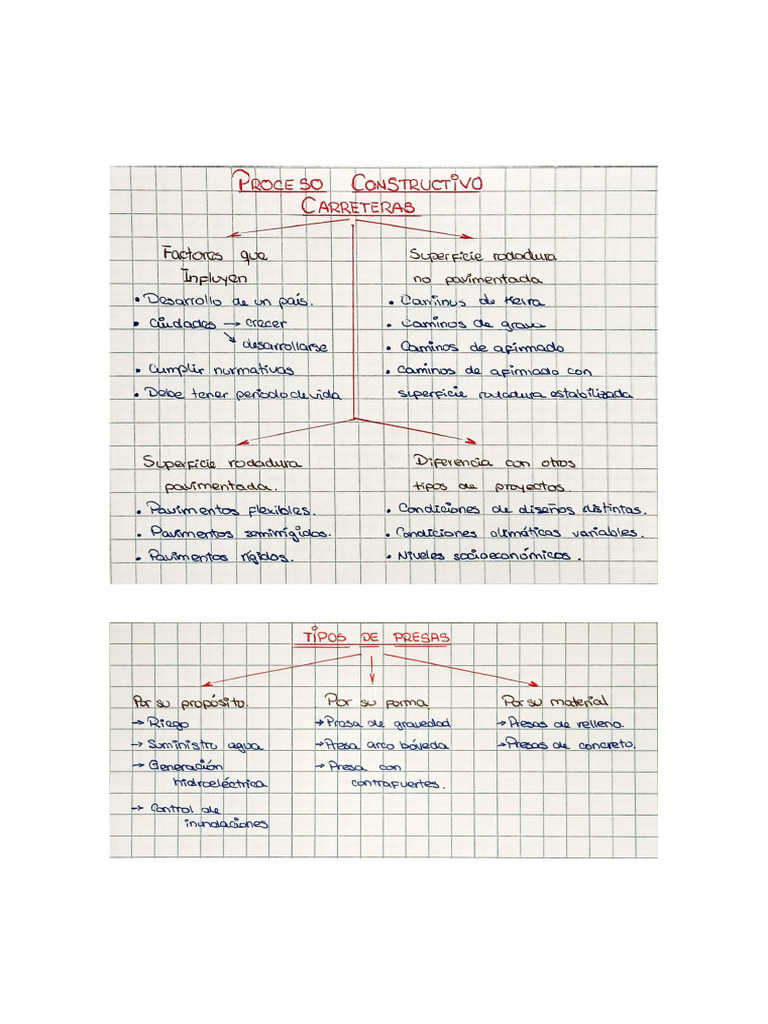 PROCESO CONSTRUCTIVO
CARRETERAS
Factores que
Influyen
• Desarrollo de un país.
• ciudades → crecer
↘ desarrollarse
• Cumplir normativas
• Debe tener periodo de vida
Superficie rodadura
no pavimentada
• Caminos de tierra
• Caminos de grava
• Caminos de afirmado
• Caminos de afirmado con
superficie rodadura estabilizada
Superficie rodadura
pavimentada.
• Pavimentos flexibles.
• Pavimentos semirrígidos.
• Pavimentos rígidos.
Diferencia con otros
tipos de proyectos.
• Condiciones de diseños distintas.
• Condiciones climáticas variables.
• Niveles socioeconómicos.
TIPOS DE PRESAS
Por su propósito.
→ Riego
→ Suministro agua
→ Generación
hidroeléctrica
→ Control de
inundaciones
Por su forma
→ Presa de gravedad
→ Presa arco bóveda
→ Presa con
contrafuertes.
Por su material
→ Presas de relleno.
→ Presas de concreto.